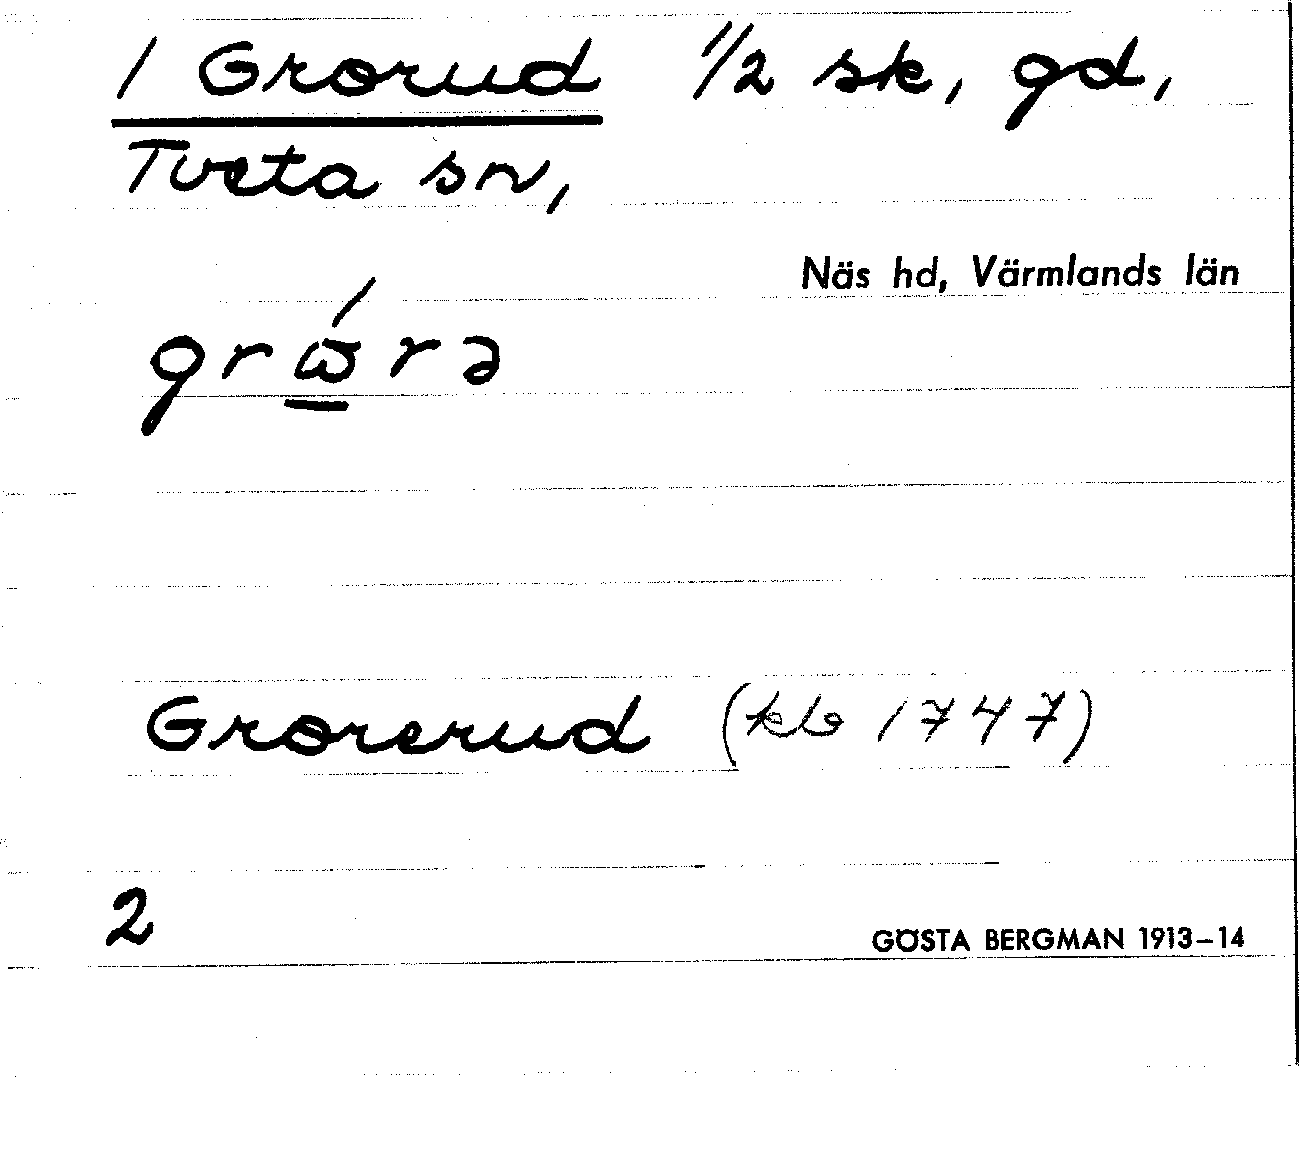 1 Grorud 1/2 sk, gd,
Tveta sn,
Näs hd, Värmlands län
grώ̲rə
Grorerud (kb 1747)
2
GÖSTA BERGMAN 1913–14